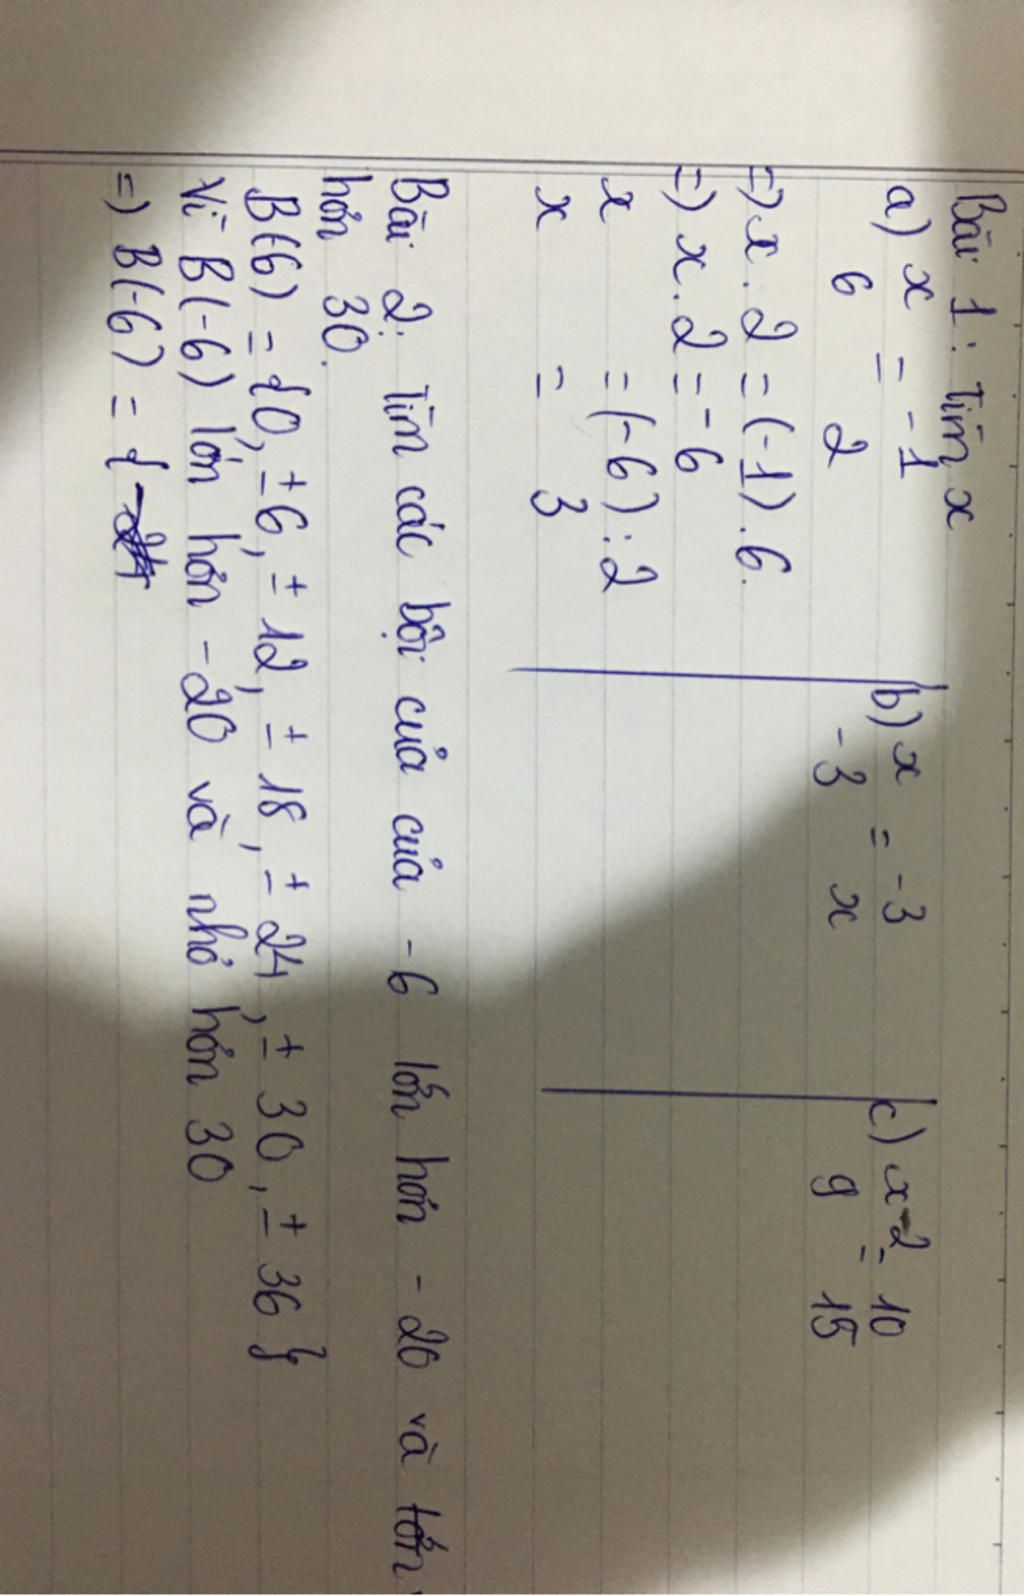 Bài 1: Tìm x
a) x = -1
6 2
=) x . 2 = (-1) . 6.
=) x . 2 = -6
x = (-6) : 2
x = 3
b) x = -3
-3 x
c) x-2 = 10
9 15
Bài 2: Tìm các bội của của -6 lớn hơn -20 và
hơn 30.
B(6) = {0, ±6, ±12, ±18, ±24, ±30, ±36}
Vì B(-6) lớn hơn -20 và nhỏ hơn 30
=) B(-6) = {